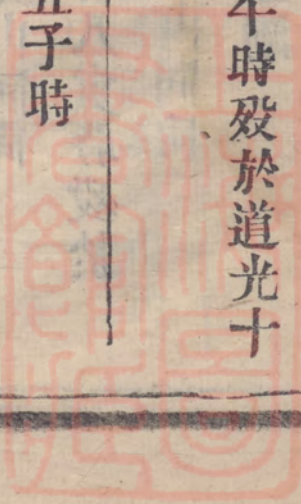 午時殁於道光十
五子時